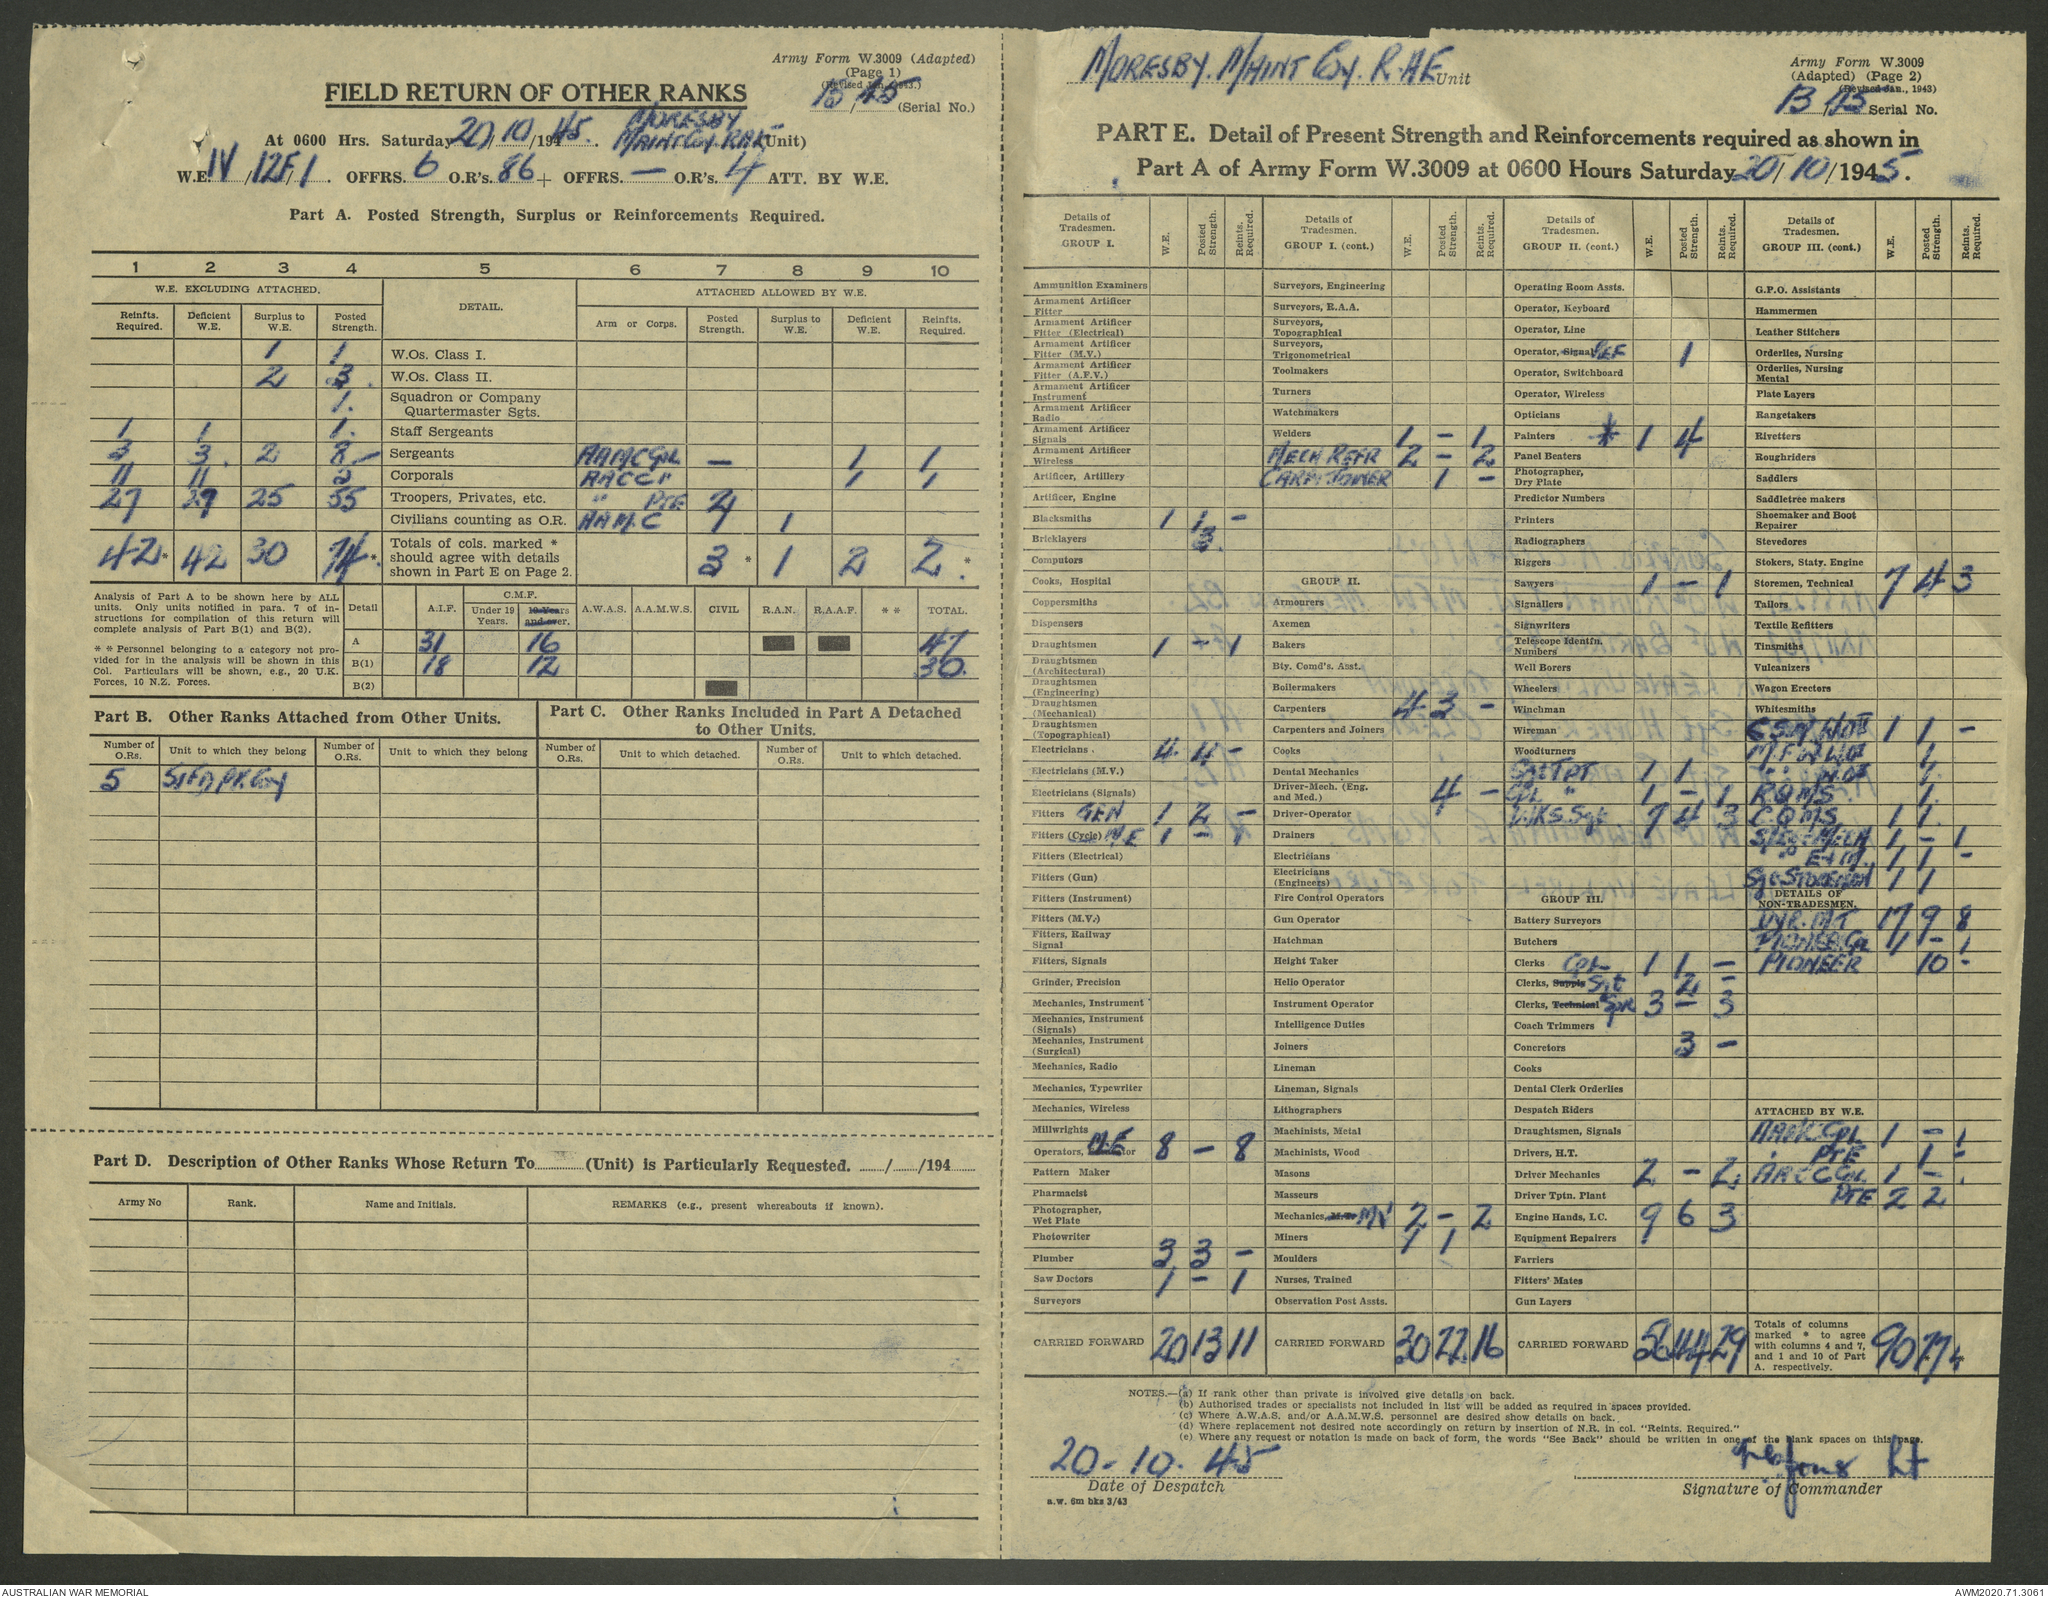 Army Form W.3009 (Adapted)
(Page 1)
(Revised Jan., 1943.)
FIELD RETURN OF OTHER RANKS
/45 (Serial No.)
At 0600 Hrs. Saturday 20/10/1945. MORESBY MAINT COY. RAE (Unit)
W.E. IV/12F/1. OFFRS. 6 O.R's. 86 + OFFRS. — O.R's. 4 ATT. BY W.E.
Part A. Posted Strength, Surplus or Reinforcements Required.
1 2 3 4 5 6 7 8 9 10
W.E. EXCLUDING ATTACHED. DETAIL. ATTACHED ALLOWED BY W.E.
Reinfts. Required. Deficient W.E. Surplus to W.E. Posted Strength. Arm or Corps. Posted Strength. Surplus to W.E. Deficient W.E. Reinfts. Required.
1 1 W.Os. Class I.
2 3. W.Os. Class II.
1. Squadron or Company Quartermaster Sgts.
1 1 1. Staff Sergeants
3 3. 2 8 Sergeants AAMC Cpl — 1 1
11 11 2 Corporals AACC " 1 1
27 27 25 55 Troopers, Privates, etc. " PTE 2
Civilians counting as O.R. AAMC 1 1
42* 42 30 74*. Totals of cols. marked * should agree with details shown in Part E on Page 2. 3* 1 2 2.*
Analysis of Part A to be shown here by ALL units. Only units notified in para. 7 of instructions for compilation of this return will complete analysis of Part B(1) and B(2).
* * Personnel belonging to a category not provided for in the analysis will be shown in this Col. Particulars will be shown, e.g., 20 U.K. Forces, 10 N.Z. Forces.
Detail A.I.F. C.M.F. Under 19 Years. 19 Years and over. A.W.A.S. A.A.M.W.S. CIVIL R.A.N. R.A.A.F. * * TOTAL.
A 31 16 47
B(1) 18 12 30.
B(2)
Part B. Other Ranks Attached from Other Units.
Part C. Other Ranks Included in Part A Detached to Other Units.
Number of O.Rs. Unit to which they belong Number of O.Rs. Unit to which they belong Number of O.Rs. Unit to which detached. Number of O.Rs. Unit to which detached.
5
Part D. Description of Other Ranks Whose Return To (Unit) is Particularly Requested. / /194
Army No Rank. Name and Initials. REMARKS (e.g., present whereabouts if known).
MORESBY. MAINT Coy. R.A.E Unit
Army Form W.3009
(Adapted) (Page 2)
(Revised Jan., 1943)
/45 Serial No.
PART E. Detail of Present Strength and Reinforcements required as shown in
Part A of Army Form W.3009 at 0600 Hours Saturday 20/10/1945.
Details of Tradesmen. GROUP I. W.E. Posted Strength. Reints. Required.
Ammunition Examiners
Armament Artificer Fitter
Armament Artificer Fitter (Electrical)
Armament Artificer Fitter (M.V.)
Armament Artificer Fitter (A.F.V.)
Armament Artificer Instrument
Armament Artificer Radio
Armament Artificer Signals
Armament Artificer Wireless
Artificer, Artillery
Artificer, Engine
Blacksmiths 1 1 –
Bricklayers 3.
Computors
Cooks, Hospital
Coppersmiths
Dispensers
Draughtsmen 1 – 1
Draughtsmen (Architectural)
Draughtsmen (Engineering)
Draughtsmen (Mechanical)
Draughtsmen (Topographical)
Electricians . 4. 4 –
Electricians (M.V.)
Electricians (Signals)
Fitters GEN 1 2 –
Fitters (Cycle) M/E 1 – 1
Fitters (Electrical)
Fitters (Gun)
Fitters (Instrument)
Fitters (M.V.)
Fitters, Railway Signal
Fitters, Signals
Grinder, Precision
Mechanics, Instrument
Mechanics, Instrument (Signals)
Mechanics, Instrument (Surgical)
Mechanics, Radio
Mechanics, Typewriter
Mechanics, Wireless
Millwrights
Operators, M.E 8 – 8
Pattern Maker
Pharmacist
Photographer, Wet Plate
Photowriter
Plumber 3 3 –
Saw Doctors 1 – 1
Surveyors
CARRIED FORWARD 20 13 11
Details of Tradesmen. GROUP I. (cont.) W.E. Posted Strength. Reints. Required.
Surveyors, Engineering
Surveyors, R.A.A.
Surveyors, Topographical
Surveyors, Trigonometrical
Toolmakers
Turners
Watchmakers
Welders 1 – 1
MECH REFR 2 – 2
1 –
GROUP II.
Armourers
Axemen
Bakers
Bty. Comd's. Asst.
Boilermakers
Carpenters 4 3 –
Carpenters and Joiners
Cooks
Dental Mechanics
Driver-Mech. (Eng. and Med.) 4 –
Driver-Operator
Drainers
Electricians
Electricians (Engineers)
Fire Control Operators
Gun Operator
Hatchman
Height Taker
Helio Operator
Instrument Operator
Intelligence Duties
Joiners
Lineman
Lineman, Signals
Lithographers
Machinists, Metal
Machinists, Wood
Masons
Masseurs
Mechanics, M.T. MV 2 – 2
Miners 1 1
Moulders
Nurses, Trained
Observation Post Assts.
CARRIED FORWARD 30 22 16
Details of Tradesmen. GROUP II. (cont.) W.E. Posted Strength. Reints. Required.
Operating Room Assts.
Operator, Keyboard
Operator, Line
Operator, Signal REF 1
Operator, Switchboard
Operator, Wireless
Opticians
Painters * 1 4
Panel Beaters
Photographer, Dry Plate
Predictor Numbers
Printers
Radiographers
Riggers
Sawyers 1 – 1
Signallers
Signwriters
Telescope Identfn. Numbers
Well Borers
Wheelers
Winchman
Wireman
Woodturners
Sgt TPT 1 1
Cpl " 1 – 1
WKS. Sgt 7 4 3
GROUP III.
Battery Surveyors
Butchers
Clerks Cpl 1 1 –
Clerks, Supply Sgt 2 –
Clerks, Technical Spr 3 – 3
Coach Trimmers
Concretors 3 –
Cooks
Dental Clerk Orderlies
Despatch Riders
Draughtsmen, Signals
Drivers, H.T.
Driver Mechanics 2 – 2.
Driver Tptn. Plant
Engine Hands, I.C. 9 6 3
Equipment Repairers
Farriers
Fitters' Mates
Gun Layers
CARRIED FORWARD 56 44 29
Details of Tradesmen. GROUP III. (cont.) W.E. Posted Strength. Reints. Required.
G.P.O. Assistants
Hammermen
Leather Stitchers
Orderlies, Nursing
Orderlies, Nursing Mental
Plate Layers
Rangetakers
Rivetters
Roughriders
Saddlers
Saddletree makers
Shoemaker and Boot Repairer
Stevedores
Stokers, Staty. Engine
Storemen, Technical 7 4 3
Tailors
Textile Refitters
Tinsmiths
Vulcanizers
Wagon Erectors
Whitesmiths
CSM WOII 1 1 –
M.F.W WOI 1
" " WOII 1
RQMS. 1.
CQMS. 1 1
S/Sgt MECH 1 – 1
" E & M. 1 1 –
Sgt STOREMAN 1 1
DETAILS OF NON-TRADESMEN.
DVR. MT 17 9 8
PIONEER Cpl 1 – 1
PIONEER 10 –
ATTACHED BY W.E.
AAMC Cpl. 1 – 1
" PTE 1 –
AACC Cpl 1 –
PTE 2 2
Totals of columns marked * to agree with columns 4 and 7, and 1 and 10 of Part A. respectively. 90 77
NOTES.—(a) If rank other than private is involved give details on back.
(b) Authorised trades or specialists not included in list will be added as required in spaces provided.
(c) Where A.W.A.S. and/or A.A.M.W.S. personnel are desired show details on back.
(d) Where replacement not desired note accordingly on return by insertion of N.R. in col. "Reints. Required."
(e) Where any request or notation is made on back of form, the words "See Back" should be written in one of the blank spaces on this page.
20-10-45
Lt
Date of Despatch
Signature of Commander
a.w. 6m bks 3/43
AUSTRALIAN WAR MEMORIAL
AWM2020.71.3061